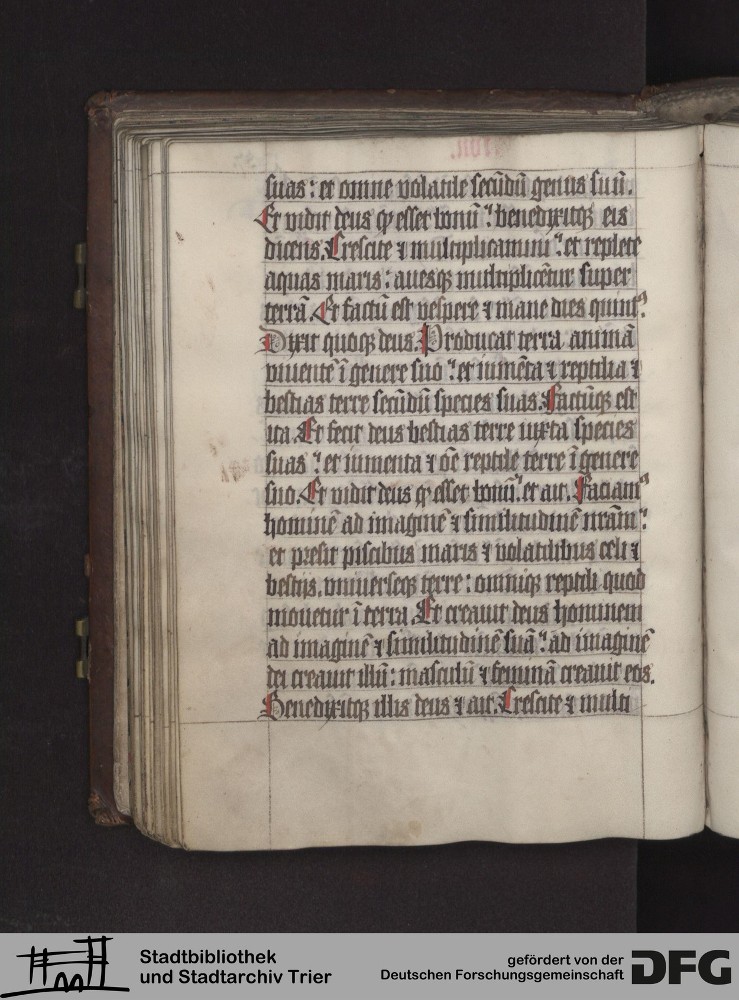 suas : et omne volatile secūdū genus suū.
Et vidit deus qͥ esset bonū ⸵ benedixitqꝫ eis
dicens. Crescite ⁊ multiplicamini ⸵ et replete
aquas maris : auesqꝫ multiplicētur super
terrā. Et factū est vespere ⁊ mane dies quintꝰ.
Dixit quoqꝫ deus. Producat terra animā
viuentē ī genere suo ⸵ et iumēta ⁊ reptilia ⁊
bestias terre secūdū species suas. Factūqꝫ est
ita. Et fecit deus bestias terre iuxta species
suas ⸵ et iumenta ⁊ oē reptile terre ī genere
suo. Et vidit deus qͥ esset bonū ⸵ et ait. Faciamꝰ
hominē ad imaginē ⁊ similitudinē nrām ⸵
et presit piscibus maris ⁊ volatilibus celi ⁊
bestijs. vniuerseqꝫ terre : omniqꝫ reptili quod
mouetur ī terra. Et creauit deus hominem
ad imaginē ⁊ similitudinē suā ⸵ ad imaginē
dei creauit illū : masculū ⁊ feminā creauit eos.
Benedixitqꝫ illis deus ⁊ ait. Crescite ⁊ multi
Stadtbibliothek
und Stadtarchiv Trier
gefördert von der
Deutschen Forschungsgemeinschaft
DFG